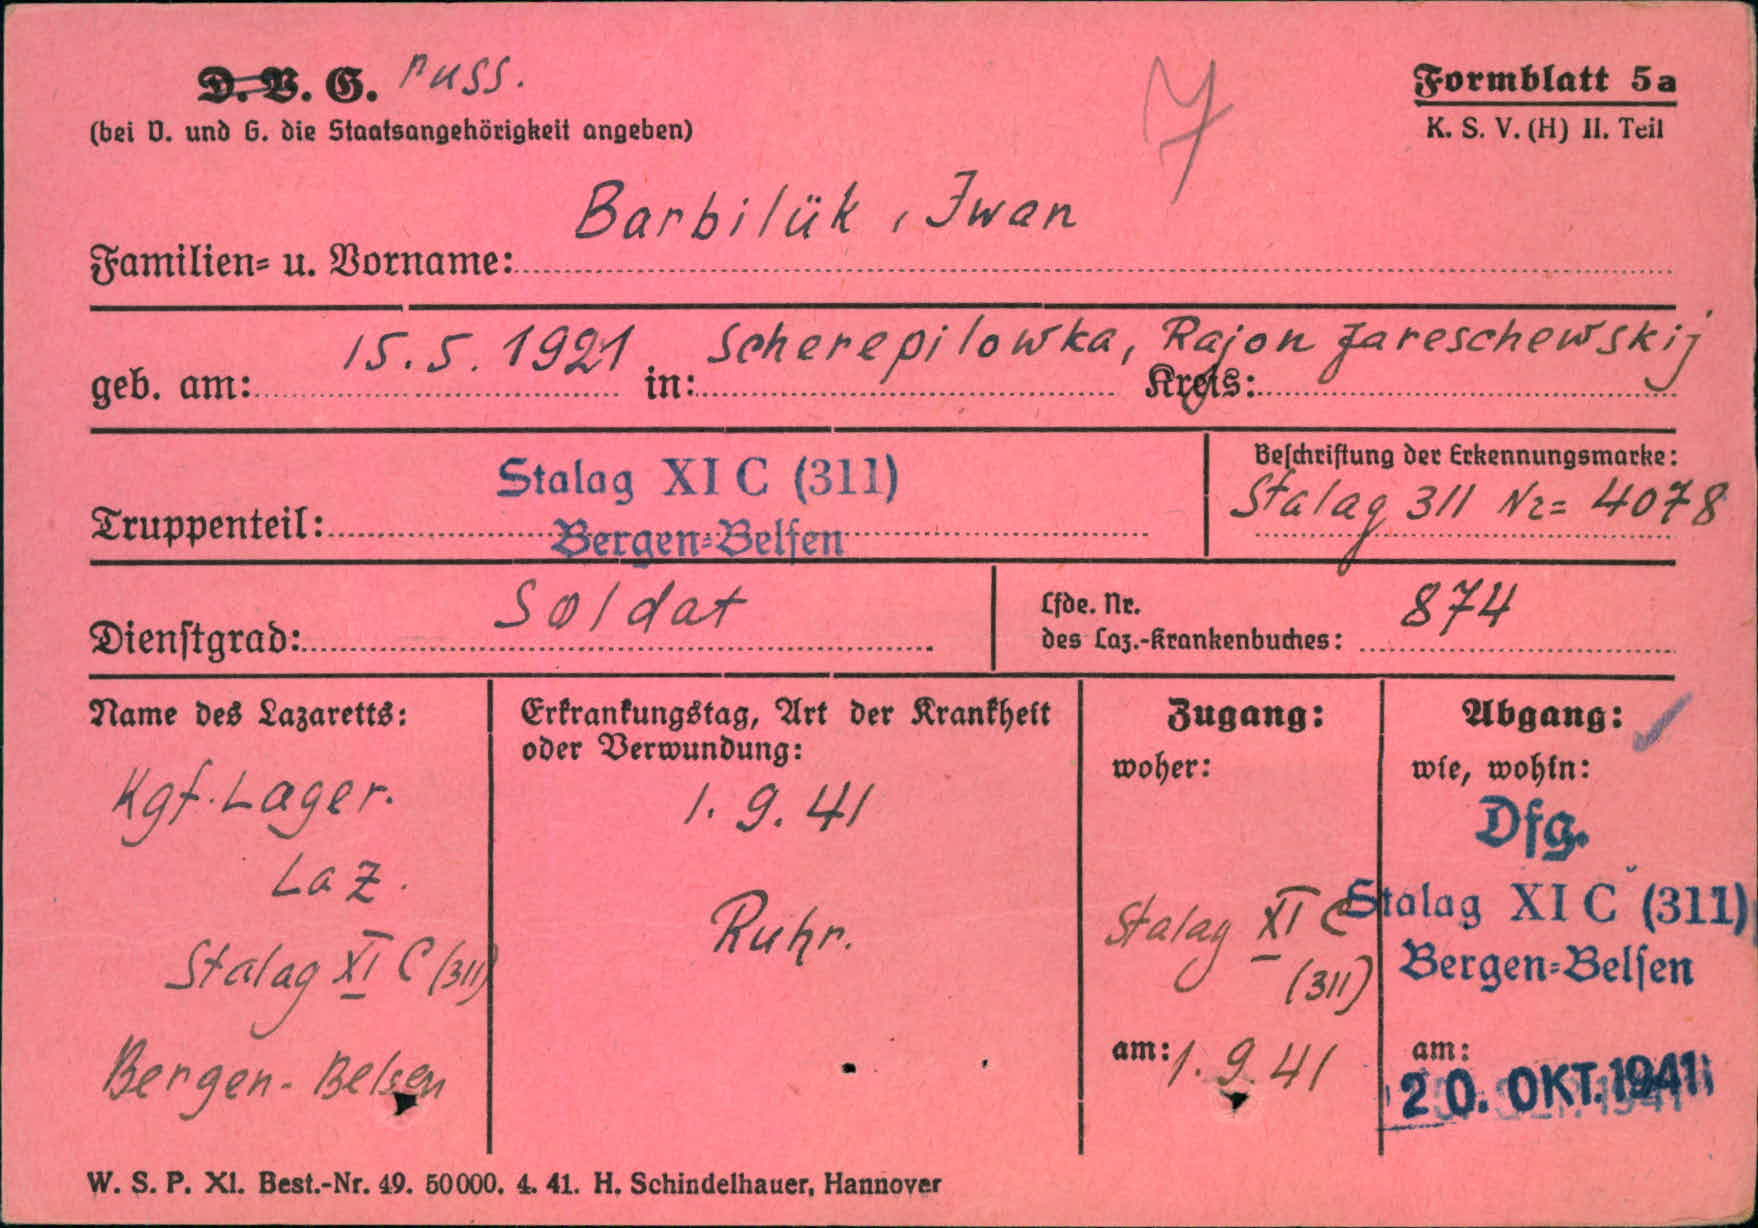 D. V. G. russ.
(bei V. und G. die Staatsangehörigkeit angeben)
7
Formblatt 5a
K. S. V. (H) II. Teil
Familien- u. Vorname: Barbilük, Iwan
geb. am: 15.5.1921 in: Scherepilowka, Kreis: Rajon Jareschewskij
Truppenteil: Stalag XI C (311)
Bergen-Belsen
Beschriftung der Erkennungsmarke:
Stalag 311 Nr= 4078
Dienstgrad: Soldat
Lfde. Nr.
des Laz.-Krankenbuches: 874
Name des Lazaretts:
Kgf. Lager.
Laz.
Stalag XI C (311)
Bergen-Belsen
Erkrankungstag, Art der Krankheit
oder Verwundung:
1.9.41
Ruhr.
Zugang:
woher:
Stalag XI C
(311)
am: 1.9.41
Abgang:
wie, wohin:
Dfg.
Stalag XI C (311)
Bergen-Belsen
am:
20. OKT. 1941
W. S. P. XI. Best.-Nr. 49. 50000. 4. 41. H. Schindelhauer, Hannover